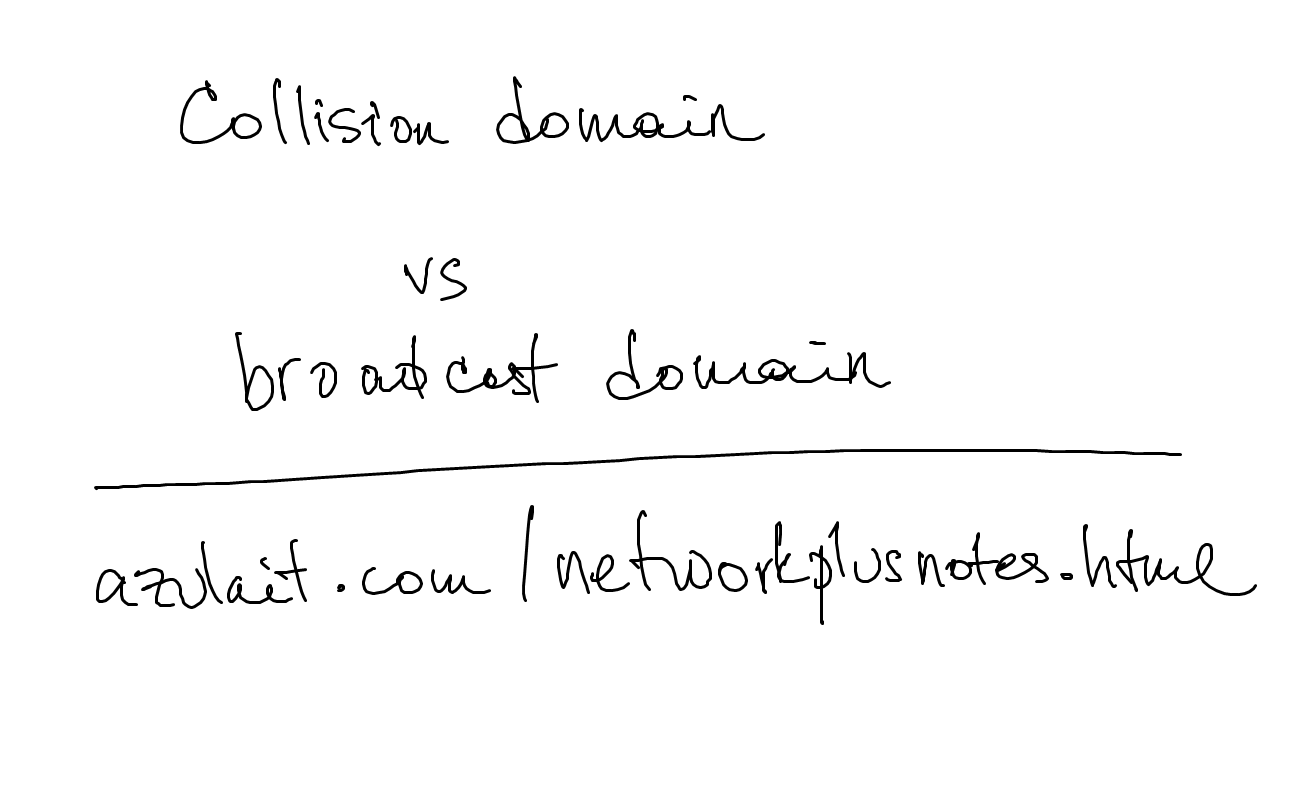 Collision domain
vs
broadcast domain
azulait.com/networkplusnotes.html